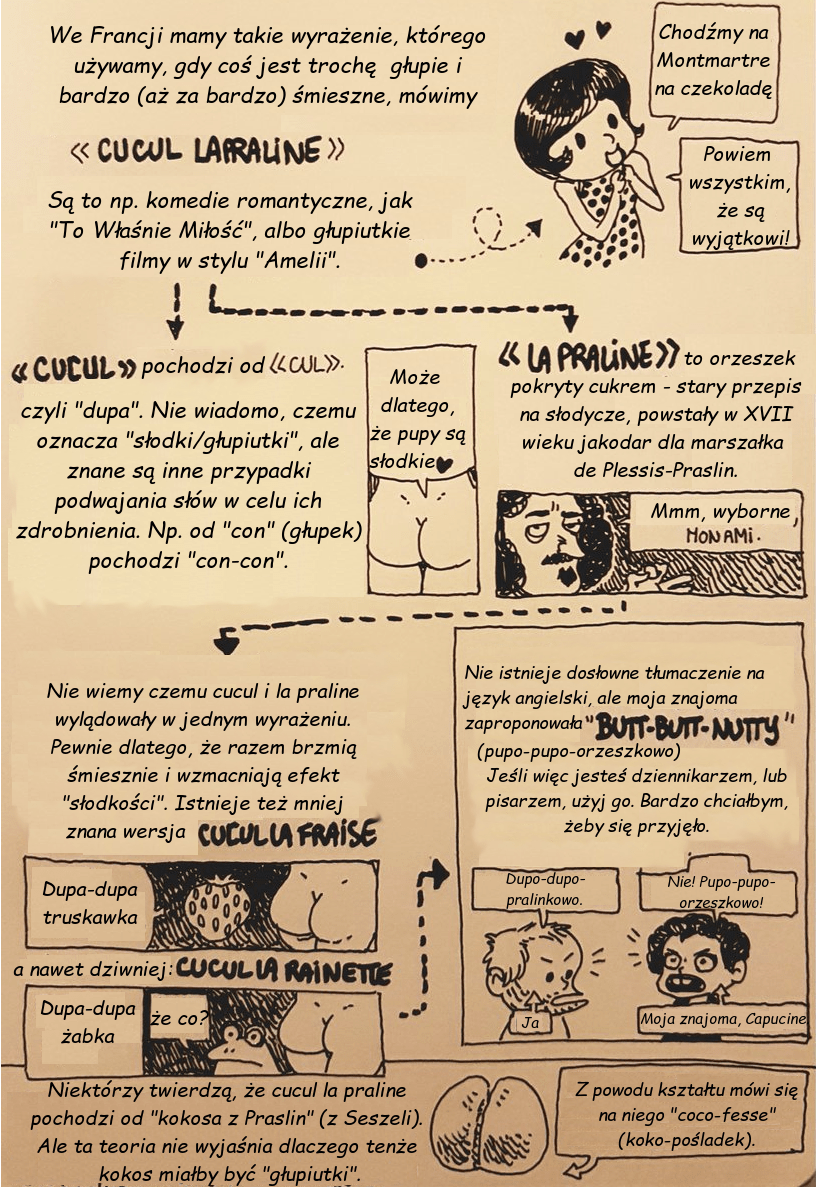 We Francji mamy takie wyrażenie, którego
używamy, gdy coś jest trochę głupie i
bardzo (aż za bardzo) śmieszne, mówimy
« CUCUL LAPRALINE »
Są to np. komedie romantyczne, jak
"To Właśnie Miłość", albo głupiutkie
filmy w stylu "Amelii".
Chodźmy na
Montmartre
na czekoladę
Powiem
wszystkim,
że są
wyjątkowi!
« CUCUL » pochodzi od «CUL».
czyli "dupa". Nie wiadomo, czemu
oznacza "słodki/głupiutki", ale
znane są inne przypadki
podwajania słów w celu ich
zdrobnienia. Np. od "con" (głupek)
pochodzi "con-con".
Może
dlatego,
że pupy są
słodkie♥
« LA PRALINE » to orzeszek
pokryty cukrem - stary przepis
na słodycze, powstały w XVII
wieku jakodar dla marszałka
de Plessis-Praslin.
Mmm, wyborne,
MON AMI.
Nie wiemy czemu cucul i la praline
wylądowały w jednym wyrażeniu.
Pewnie dlatego, że razem brzmią
śmiesznie i wzmacniają efekt
"słodkości". Istnieje też mniej
znana wersja CUCUL LA FRAISE
Dupa-dupa
truskawka
a nawet dziwniej: CUCUL LA RAINETTE
Dupa-dupa
żabka
że co?
Nie istnieje dosłowne tłumaczenie na
język angielski, ale moja znajoma
zaproponowała "BUTT-BUTT-NUTTY"
(pupo-pupo-orzeszkowo)
Jeśli więc jesteś dziennikarzem, lub
pisarzem, użyj go. Bardzo chciałbym,
żeby się przyjęło.
Dupo-dupo-
pralinkowo.
Nie! Pupo-pupo-
orzeszkowo!
Ja
Moja znajoma, Capucine
Niektórzy twierdzą, że cucul la praline
pochodzi od "kokosa z Praslin" (z Seszeli).
Ale ta teoria nie wyjaśnia dlaczego tenże
kokos miałby być "głupiutki".
Z powodu kształtu mówi się
na niego "coco-fesse"
(koko-pośladek).